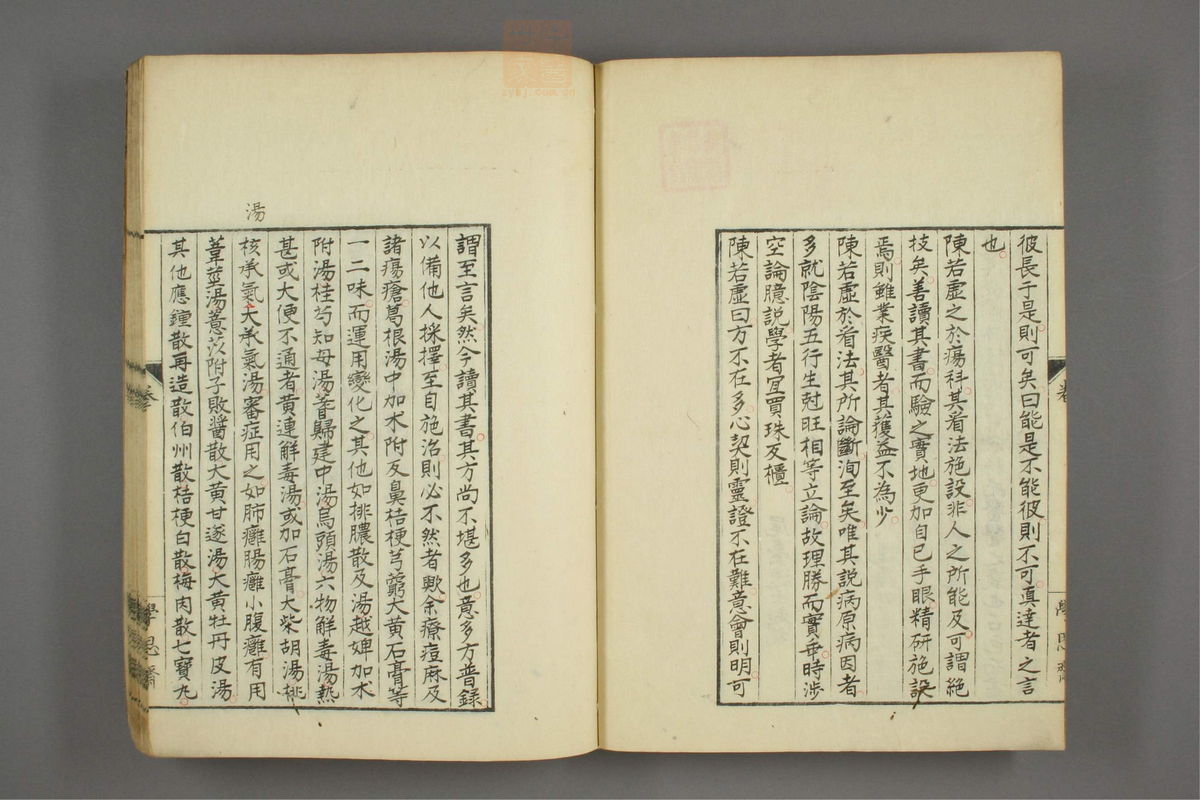 彼長于是則可矣曰能是不能彼則不可真達者之言
也
陳若虛之於瘍科其看法施設非人之所能及可謂絕
技矣善讀其書而驗之實地更加自己手眼精研施設
焉則雖業疾醫者其獲益不為少
陳若虛於看法其所論斷洵至矣唯其說病原病因者
多就陰陽五行生尅旺相等立論故理勝而實乖時涉
空論臆說學者宜買珠反櫃
陳若虛曰方不在多心契則靈證不在難意會則明可
謂至言矣然今讀其書其方尚不堪多也意多方普錄
以備他人採擇至自施治則必不然者歟余療痘麻及
諸瘍瘡葛根湯中加朮附反鼻桔梗芎藭大黃石膏等
一二味而運用變化之其他如排膿散及湯越婢加朮
附湯桂芍知母湯耆歸建中湯烏頭湯六物解毒湯熱
甚或大便不通者黃連解毒湯或加石膏大柴胡湯桃
核承氣大承氣湯審症用之如肺癰腸癰小腹癰有用
湯
葦莖湯薏苡附子敗醬散大黃甘遂湯大黃牡丹皮湯
其他應鐘散再造散伯州散桔梗白散梅肉散七寶丸
卷
學思齋